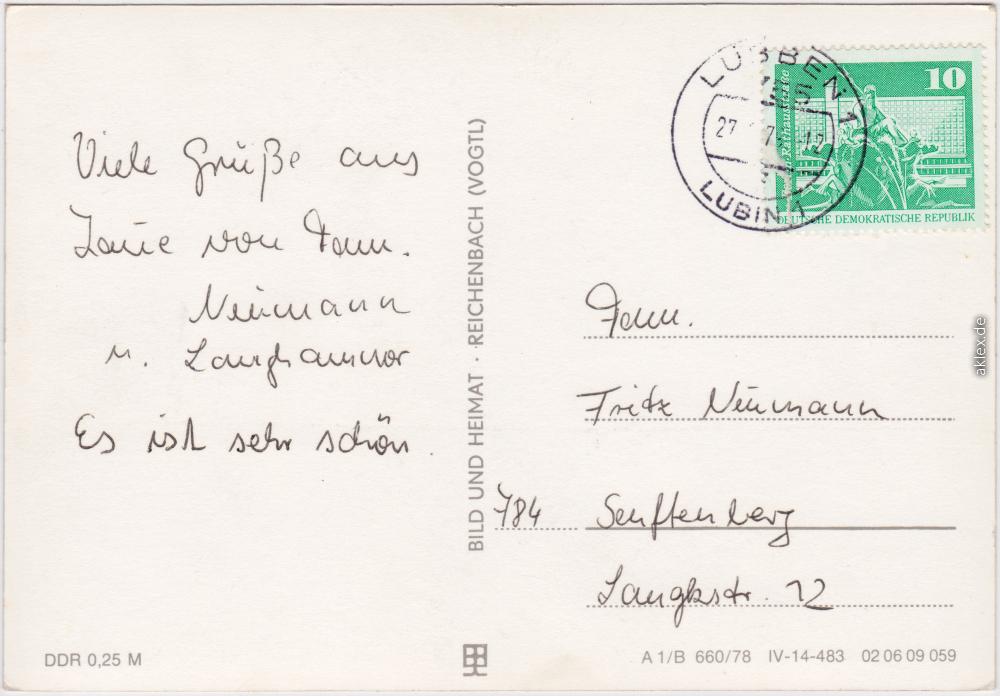 Viele Grüße aus
von Fam.
Neumann
u. Langhammer
Es ist sehr schön.
BILD UND HEIMAT · REICHENBACH (VOGTL)
LÜBBEN 1
27
LUBIN 1
10
Rathausstraße
DEUTSCHE DEMOKRATISCHE REPUBLIK
Fam.
Fritz Neumann
784 Senftenberg
12
DDR 0,25 M
A 1/B 660/78 IV-14-483 02 06 09 059
aklex.de